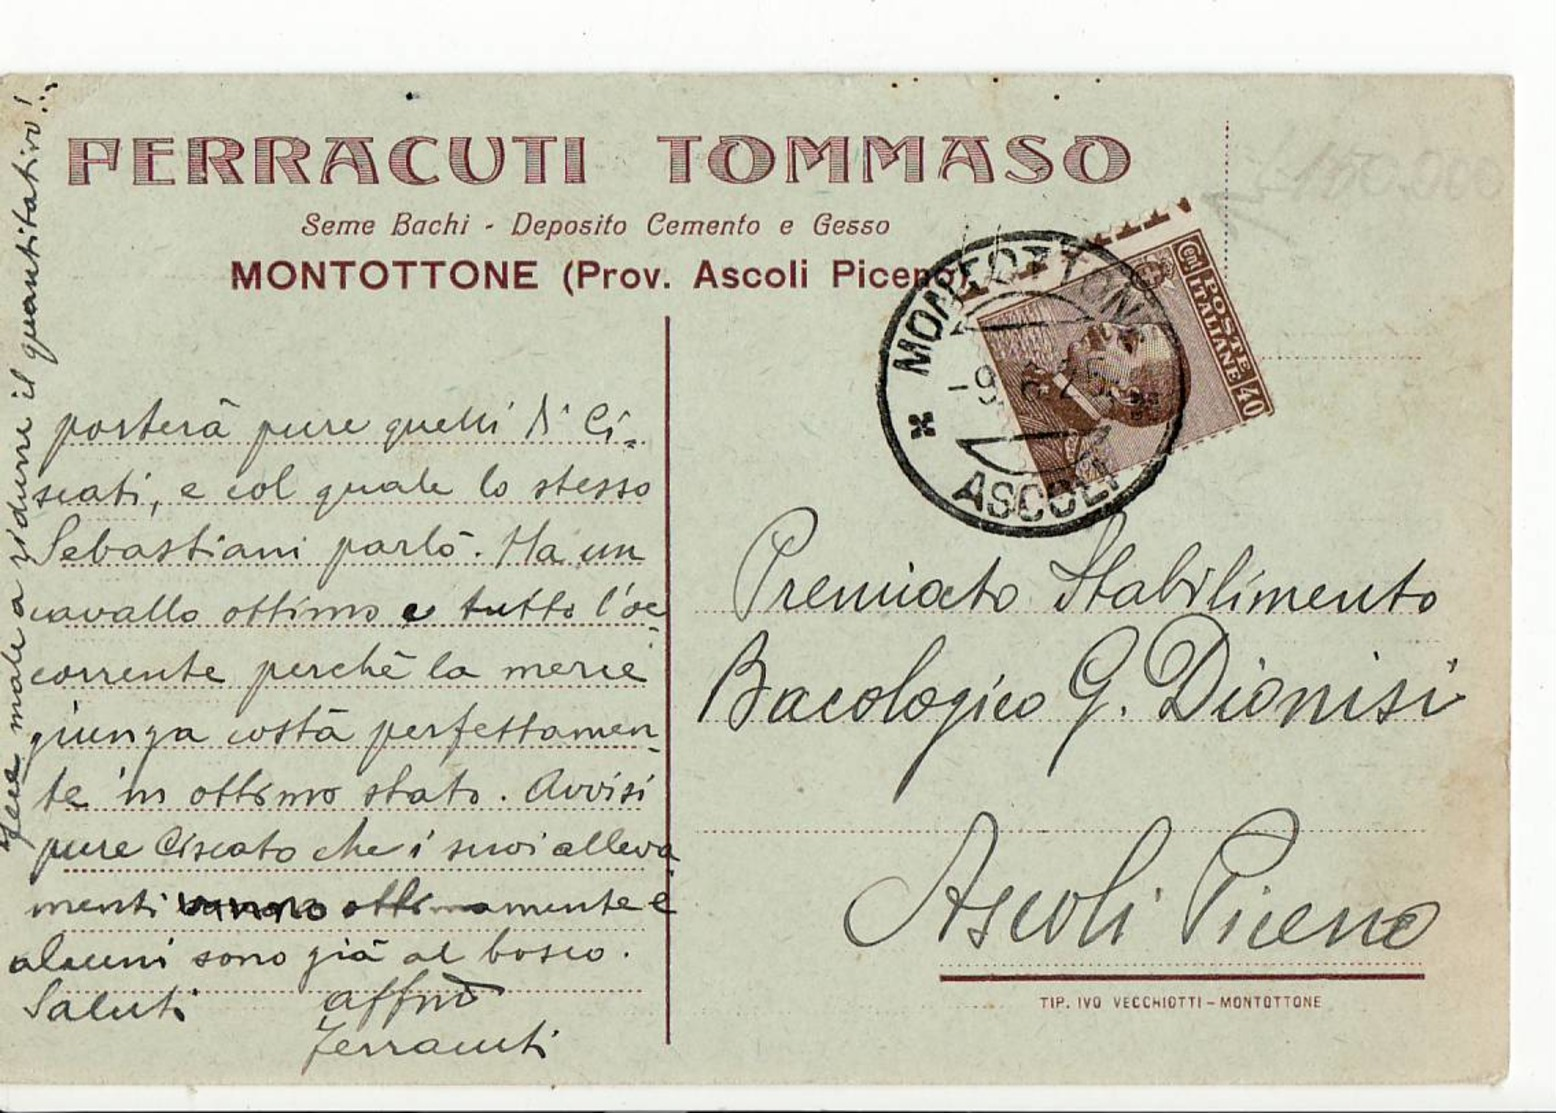 FERRACUTI TOMMASO
Seme Bachi - Deposito Cemento e Gesso
MONTOTTONE (Prov. Ascoli Piceno)
MONTOTTONE
-9. 6. 25
ASCOLI
POSTE ITALIANE
40
100.000
porterà pure quelli di Ci-
scati, e col quale lo stesso
Sebastiani parlò. Ha un
cavallo ottimo e tutto l'oc-
corrente perchè la merce
giunga costà perfettamen-
te in ottimo stato. Avvisi
pure Ciscato che i suoi alleva
menti vanno ottimamente e
alcuni sono già al bosco.
Saluti affmo
Ferracuti
Fece male a ridurre il quantitativo!..
Premiato Stabilimento
Bacologico G. Dionisi
Ascoli Piceno
TIP. IVO VECCHIOTTI - MONTOTTONE